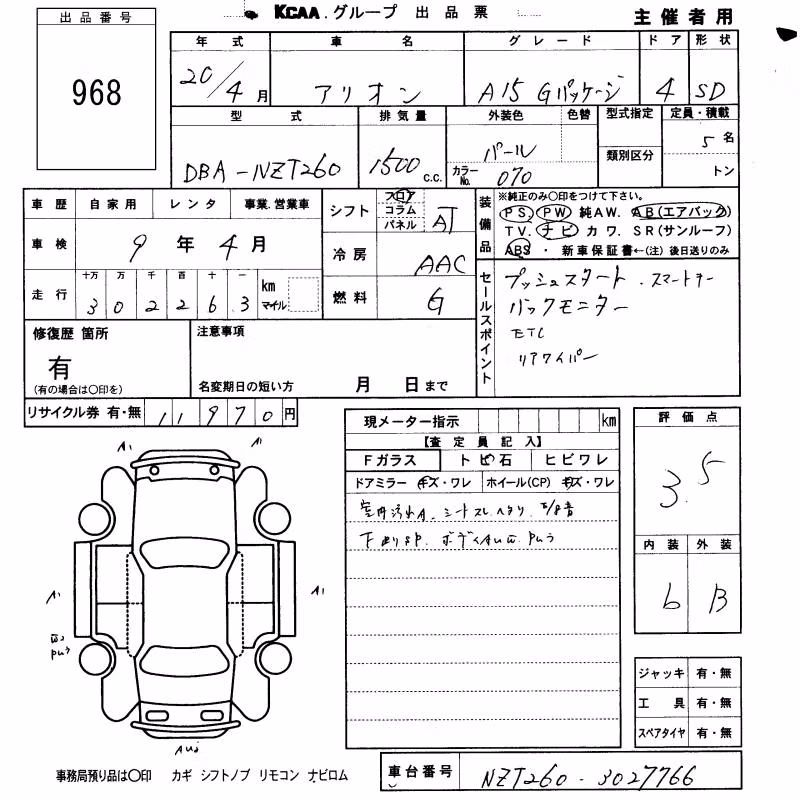 出品番号
968
KCAA.グループ 出品票
主催者用
年式 車名 グレード ドア 形状
20/4月 アリオン A15 Gパッケージ 4 SD
型式 排気量 外装色 色替 型式指定 定員・積載
類別区分
DBA-NZT260 1500c.c. パール カラーNo. 070 5名
トン
車歴 自家用 レンタ 事業.営業車
車検 9年4月
走行 十万 万 千 百 十 一
3 0 2 2 6 3 km マイル
シフト フロア コラム パネル AT
冷房 AAC
燃料 G
装備品
※純正のみ○印をつけて下さい。
PS. PW 純AW. AB(エアバック)
TV. ナビ カワ. SR(サンルーフ)
ABS ・ 新車保証書←(注) 後日送りのみ
セールスポイント
プッシュスタート.スマートキー
バックモニター
ETC
リアワイパー
修復歴 箇所
有
(有の場合は○印を)
注意事項
名変期日の短い方 月 日まで
リサイクル券 有・無 11970円
現メーター指示 km
【査定員記入】
Fガラス トビ石 ヒビワレ
ドアミラー キズ・ワレ ホイール(CP) キズ・ワレ
室内汚れA.シートスレ.ヘタリ.
下廻りSP.ボディAU
評価点
3.5
内装 外装
6 B
A1 A1
A1 A1
ジャッキ 有・無
工具 有・無
スペアタイヤ 有・無
事務局預り品は○印 カギ シフトノブ リモコン ナビロム
車台番号 NZT260-3027766